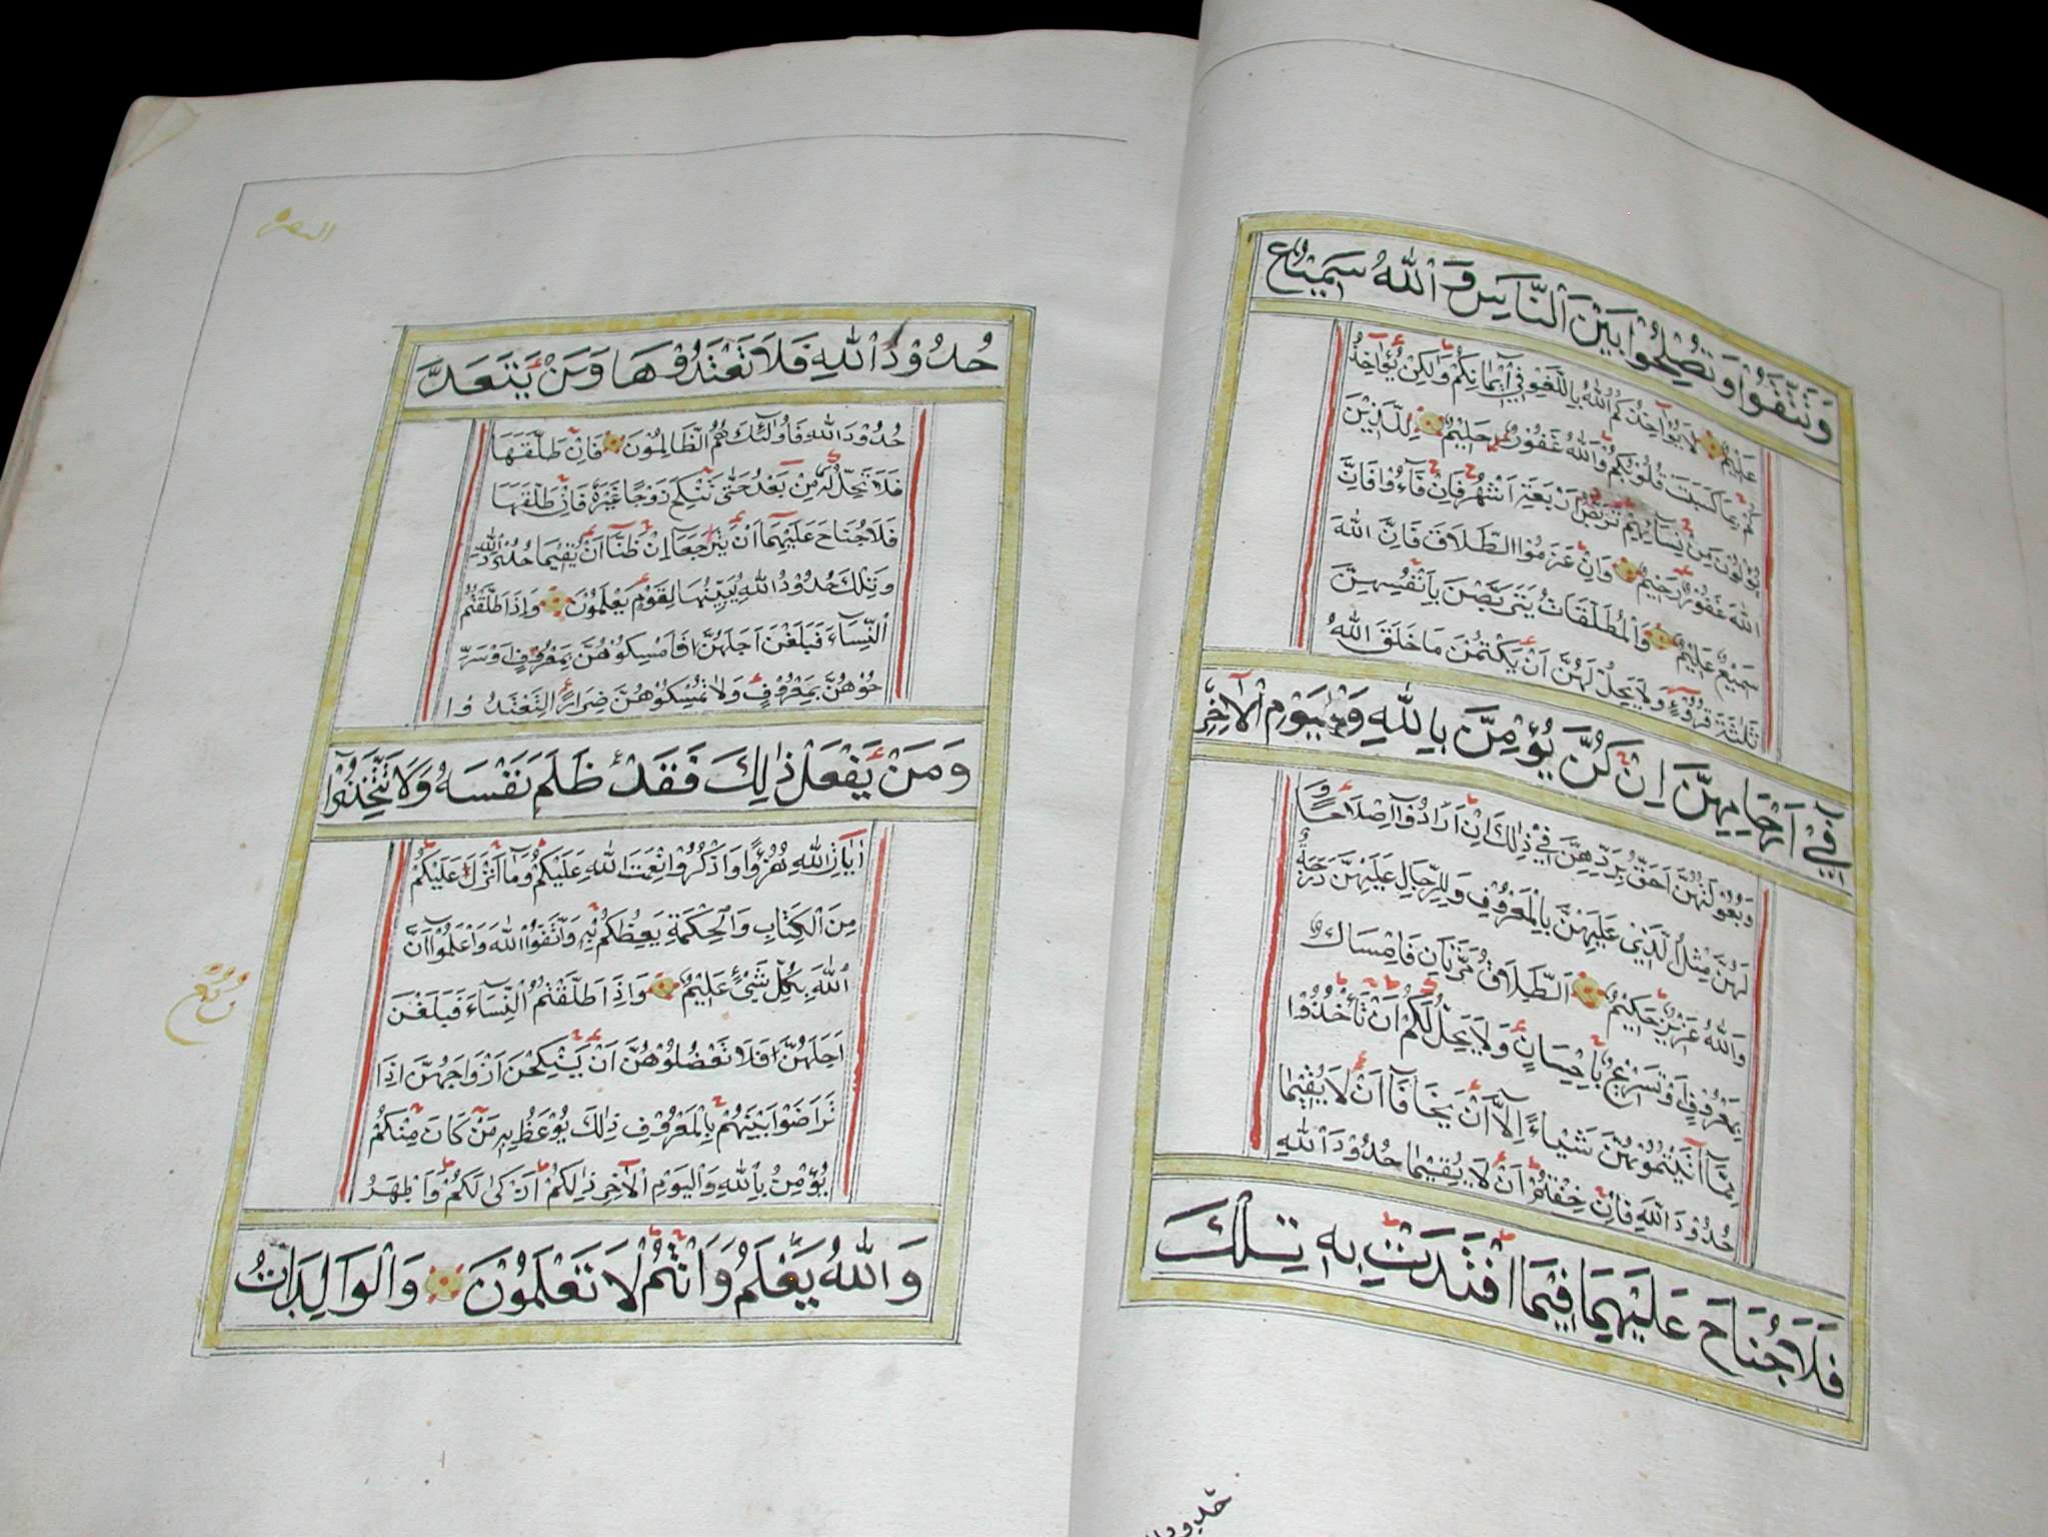 وَتَتَّقُوا وَتُصْلِحُوا بَيْنَ النَّاسِ وَاللهُ سَمِيعٌ
عَلِيمٌ لَا يُؤَاخِذُكُمُ اللهُ بِاللَّغْوِ فِي أَيْمَانِكُمْ وَلَكِنْ يُؤَاخِذُ
كُمْ بِمَا كَسَبَتْ قُلُوبُكُمْ وَاللهُ غَفُورٌ حَلِيمٌ لِلَّذِينَ
يُؤْلُونَ مِنْ نِسَائِهِمْ تَرَبُّصُ أَرْبَعَةِ أَشْهُرٍ فَإِنْ فَاءُوا فَإِنَّ
اللهَ غَفُورٌ رَحِيمٌ وَإِنْ عَزَمُوا الطَّلَاقَ فَإِنَّ اللهَ
سَمِيعٌ عَلِيمٌ وَالْمُطَلَّقَاتُ يَتَرَبَّصْنَ بِأَنْفُسِهِنَّ
ثَلٰثَةَ قُرُوءٍ وَلَا يَحِلُّ لَهُنَّ أَنْ يَكْتُمْنَ مَا خَلَقَ اللهُ
فِي أَرْحَامِهِنَّ إِنْ كُنَّ يُؤْمِنَّ بِاللهِ وَالْيَوْمِ الْآخِرِ
وَبُعُولَتُهُنَّ أَحَقُّ بِرَدِّهِنَّ فِي ذٰلِكَ إِنْ أَرَادُوا إِصْلَاحًا وَ
لَهُنَّ مِثْلُ الَّذِي عَلَيْهِنَّ بِالْمَعْرُوفِ وَلِلرِّجَالِ عَلَيْهِنَّ دَرَجَةٌ
وَاللهُ عَزِيزٌ حَكِيمٌ الطَّلَاقُ مَرَّتَانِ فَإِمْسَاكٌ
بِمَعْرُوفٍ أَوْ تَسْرِيحٌ بِإِحْسَانٍ وَلَا يَحِلُّ لَكُمْ أَنْ تَأْخُذُوا
مِمَّا آتَيْتُمُوهُنَّ شَيْئًا إِلَّا أَنْ يَخَافَا أَنْ لَا يُقِيمَا
حُدُودَ اللهِ فَإِنْ خِفْتُمْ أَنْ لَا يُقِيمَا حُدُودَ اللهِ
فَلَا جُنَاحَ عَلَيْهِمَا فِيمَا افْتَدَتْ بِهِ تِلْكَ
حُدُودُ
البقرة
حُدُودُ اللهِ فَلَا تَعْتَدُوهَا وَمَنْ يَتَعَدَّ
حُدُودَ اللهِ فَأُولٰئِكَ هُمُ الظَّالِمُونَ فَإِنْ طَلَّقَهَا
فَلَا تَحِلُّ لَهُ مِنْ بَعْدُ حَتّٰى تَنْكِحَ زَوْجًا غَيْرَهُ فَإِنْ طَلَّقَهَا
فَلَا جُنَاحَ عَلَيْهِمَا أَنْ يَتَرَاجَعَا إِنْ ظَنَّا أَنْ يُقِيمَا حُدُودَ اللهِ
وَتِلْكَ حُدُودُ اللهِ يُبَيِّنُهَا لِقَوْمٍ يَعْلَمُونَ وَإِذَا طَلَّقْتُمُ
النِّسَاءَ فَبَلَغْنَ أَجَلَهُنَّ فَأَمْسِكُوهُنَّ بِمَعْرُوفٍ أَوْ سَرِّ
حُوهُنَّ بِمَعْرُوفٍ وَلَا تُمْسِكُوهُنَّ ضِرَارًا لِتَعْتَدُوا
وَمَنْ يَفْعَلْ ذٰلِكَ فَقَدْ ظَلَمَ نَفْسَهُ وَلَا تَتَّخِذُوا
آيَاتِ اللهِ هُزُوًا وَاذْكُرُوا نِعْمَتَ اللهِ عَلَيْكُمْ وَمَا أَنْزَلَ عَلَيْكُمْ
مِنَ الْكِتَابِ وَالْحِكْمَةِ يَعِظُكُمْ بِهِ وَاتَّقُوا اللهَ وَاعْلَمُوا أَنَّ
اللهَ بِكُلِّ شَيْءٍ عَلِيمٌ وَإِذَا طَلَّقْتُمُ النِّسَاءَ فَبَلَغْنَ
أَجَلَهُنَّ فَلَا تَعْضُلُوهُنَّ أَنْ يَنْكِحْنَ أَزْوَاجَهُنَّ إِذَا
تَرَاضَوْا بَيْنَهُمْ بِالْمَعْرُوفِ ذٰلِكَ يُوعَظُ بِهِ مَنْ كَانَ مِنْكُمْ
يُؤْمِنُ بِاللهِ وَالْيَوْمِ الْآخِرِ ذٰلِكُمْ أَزْكٰى لَكُمْ وَأَطْهَرُ
وَاللهُ يَعْلَمُ وَأَنْتُمْ لَا تَعْلَمُونَ وَالْوَالِدَاتُ